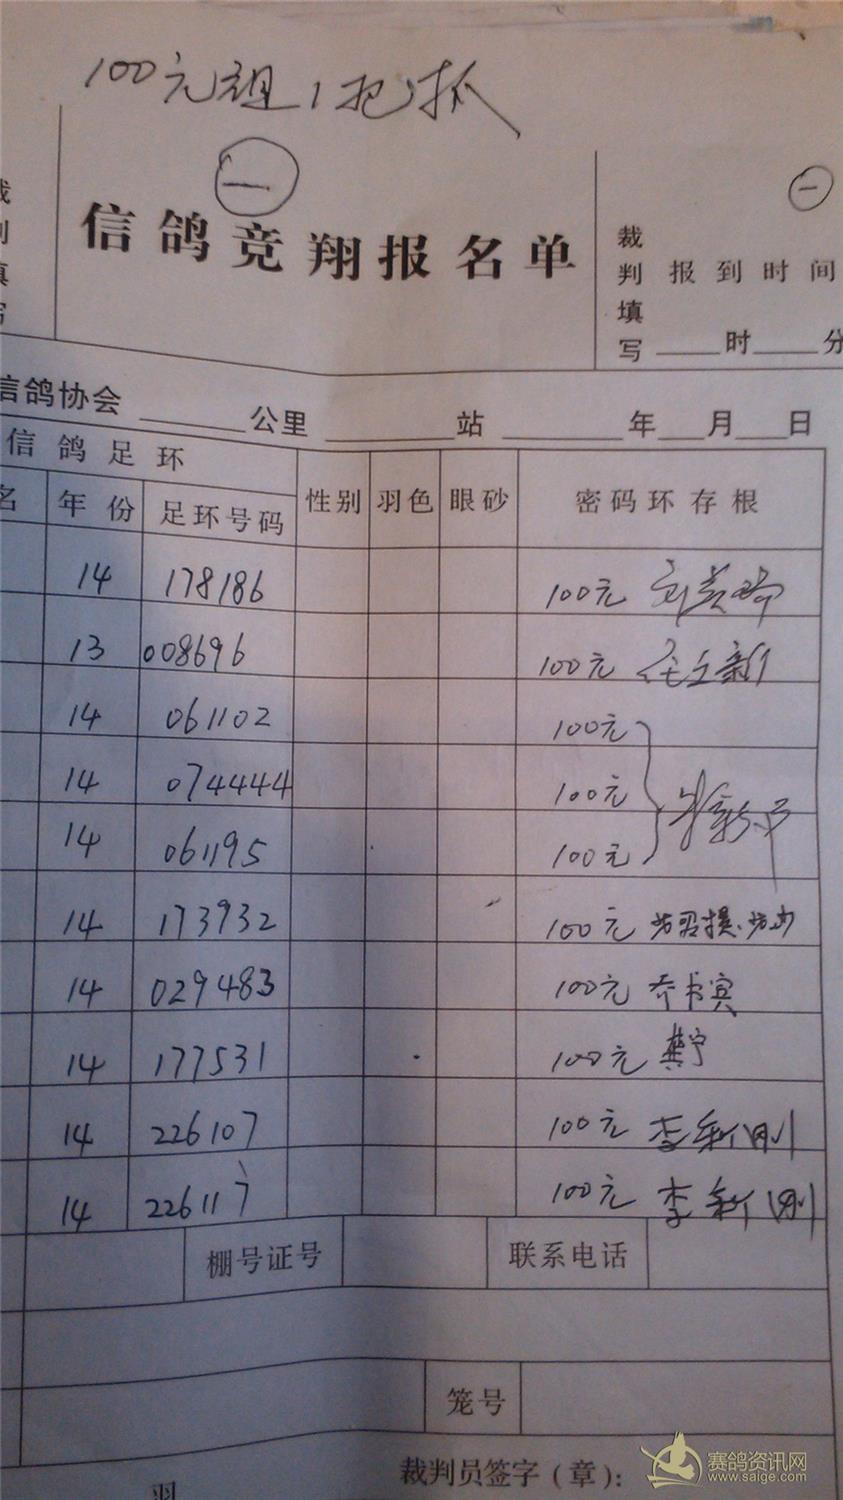 100元组1把抓
㊀
信鸽竞翔报名单
㊀
裁判填写
报到时间
时 分
信鸽协会 公里 站 年 月 日
信鸽足环
名 年份 足环号码 性别 羽色 眼砂 密码环存根
14 178186 100元
13 008696 100元 任立新
14 061102 100元
14 074444 100元
14 061195 100元
14 173932 100元
14 029483 100元 乔书宾
14 177531 100元 龚宁
14 226107 100元 李新刚
14 226117 100元 李新刚
棚号证号 联系电话
笼号
裁判员签字(章):
羽
赛鸽资讯网
www.saige.com